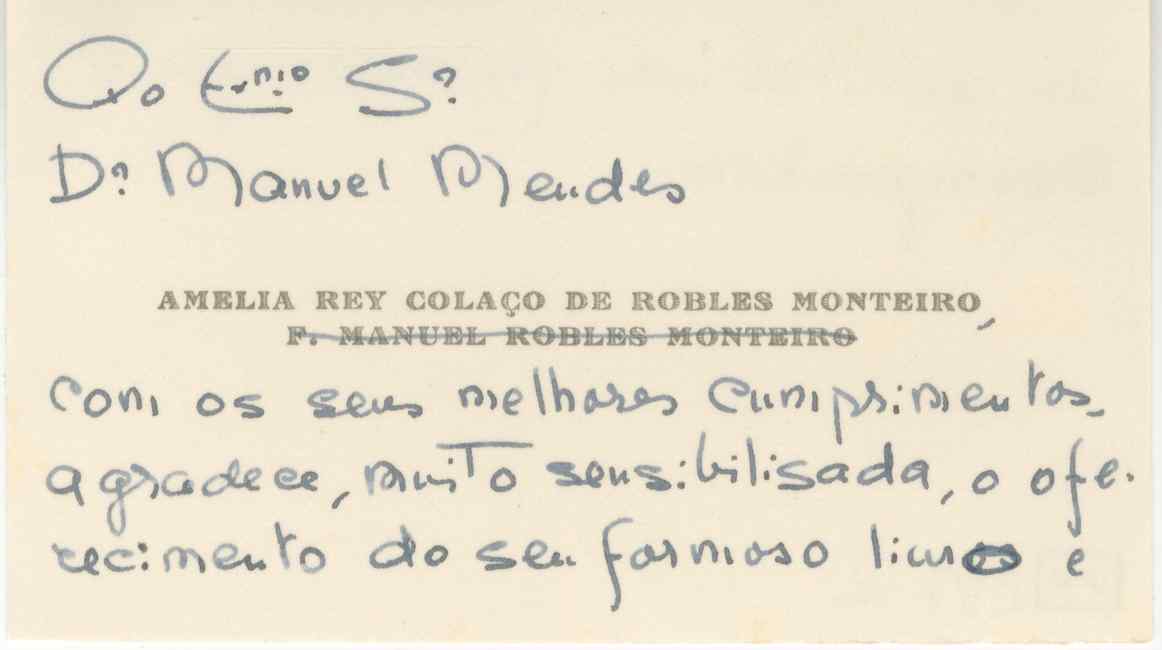 Ao Exmio Sr.
Dr. Manuel Mendes
AMELIA REY COLAÇO DE ROBLES MONTEIRO,
F. MANUEL ROBLES MONTEIRO
com os seus melhores cumprimentos,
agradece, muito sensibilisada, o ofe-
recimento do seu formoso livro e